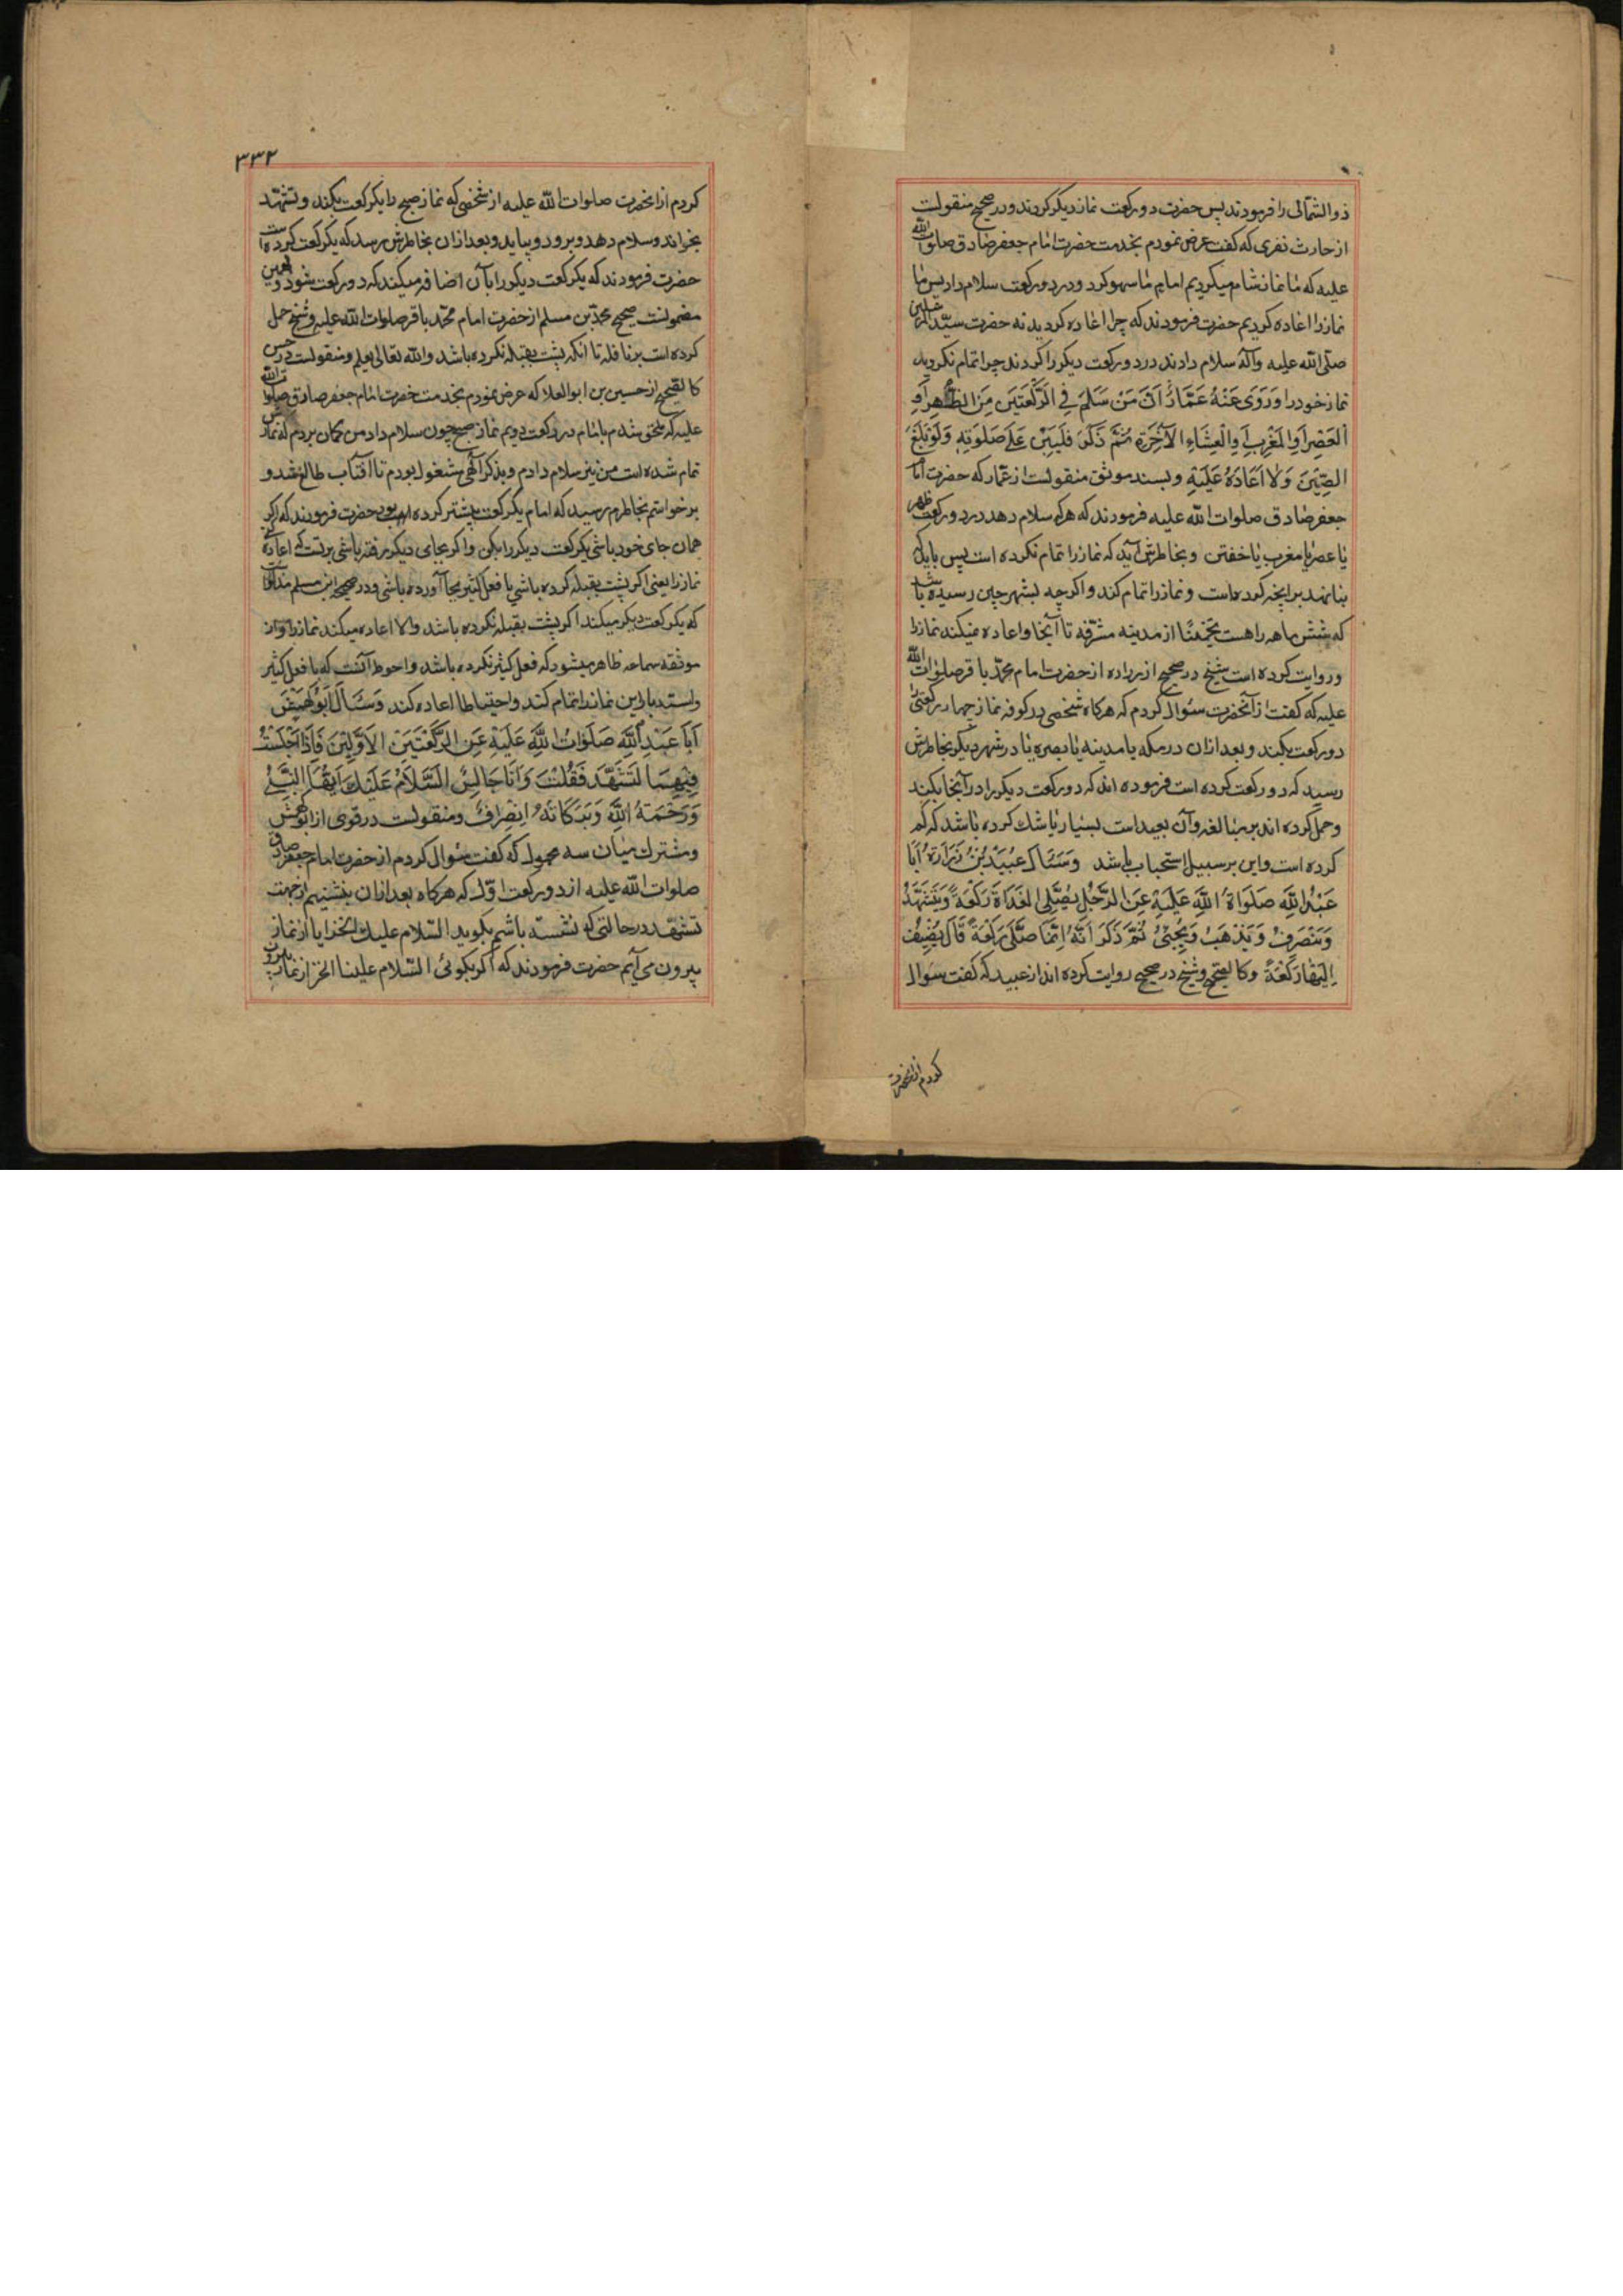 ذوالشمالی را فرمودند پس حضرت دو رکعت نماز دیکر کردند و در صحیح منقولست
از حارث نفری که کفت عرض نمودم بخدمت حضرت امام جعفر صادق صلوات الله
علیه که ما نماز شام میکردیم امام ما سهو کرد و در دو رکعت سلام داد پس ما
نماز را اعاده کردیم حضرت فرمودند که چرا اعاده کردید نه حضرت سید المرسلین
صلی الله علیه وآله سلام دادند در دو رکعت دیکر را کردند چرا تمام نکردید
نماز خود را وَرَوَی عَنْهُ عَمَّارٌ اَنَّ مَنْ سَلَّمَ فِی الرَّکْعَتَیْنِ مِنَ الظُّهْرِ اَوِ
الْعَصْرِ اَوِ الْمَغْرِبِ اَوِ الْعِشَاءِ الْآخِرَةِ ثُمَّ ذَکَرَ فَلْیَبْنِ عَلَی صَلَوتِهِ وَلَوْ بَلَغَ
الصِّینَ وَلَا اِعَادَةَ عَلَیْهِ و بسند موثق منقولست از عمار که حضرت امام
جعفر صادق صلوات الله علیه فرمودند که هرکه سلام دهد در دو رکعت ظهر
یا عصر یا مغرب یا خفتن و بخاطرش آید که نماز را تمام نکرده است پس باید که
بنا نهد بر انچه کرده است و نماز را تمام کند و اکرچه بشهر چین رسیده باشد
که شش ماهه راهست تخمینًا از مدینه مشرفه تا آنجا و اعاده نمیکند نماز را
و روایت کرده است شیخ در صحیح از زراره از حضرت امام محمد باقر صلوات الله
علیه که کفت از آنحضرت سئوال کردم که هرکاه شخصی در کوفه نماز چهار رکعتی را
دو رکعت بکند و بعد ازان در مکه یا مدینه یا بصره یا در شهر دیکر بخاطرش
رسید که دو رکعت کرده است فرموده اند که دو رکعت دیکر را در آنجا بکند
و حمل کرده اند بر مبالغه وآن بعید است بسیار یا شک کرده باشد که کم
کرده است و این بر سبیل استحباب باشد وَسَئَلَ عُبَیْدُ بْنُ زُرَارَةَ اَبَا
عَبْدِ اللّٰهِ صَلَوَاةُ اللّٰهِ عَلَیْهِ عَنِ الرَّجُلِ یُصَلِّی الْغَدَاةَ رَکْعَةً وَیَتَشَهَّدُ
وَیَنْصَرِفُ وَیَذْهَبُ وَیَجِیْئُ ثُمَّ ذَکَرَ اَنَّهُ اِنَّمَا صَلَّی رَکْعَةً قَالَ یُضِیفُ
اِلَیْهَا رَکْعَةً و کالصحیح و شیخ در صحیح روایت کرده اند از عبید که کفت سؤال
کردم ازانحضرت
۳۳۲
کردم ازانحضرت صلوات الله علیه از شخصی که نماز صبح را یکرکعت بکند و تشهد
بخواند و سلام دهد و برود و بیاید و بعد ازان بخاطرش رسد که یکرکعت کرده است
حضرت فرمودند که یکرکعت دیکر را بآن اضافه میکند که دو رکعت شود و بهمین
مضمونست صحیح محمد بن مسلم از حضرت امام محمد باقر صلوات الله علیه و شیخ حمل
کرده است بر نافله تا انکه پشت بقبله نکرده باشد والله تعالی یعلم و منقولست در حسن
کالصحیح از حسین بن ابوالعلاء که عرض نمودم بخدمت حضرت امام جعفر صادق صلوات الله
علیه که ملحق شدم بامام در رکعت دویم نماز صبح چون سلام داد من کمان بردم که نماز من
تمام شده است من نیز سلام دادم و بذکر آلهی مشغول بودم تا آفتاب طالع شد و
برخواستم بخاطرم رسید که امام یکرکعت پیشتر کرده بود حضرت فرمودند که اکر
همان جای خود باشی یکرکعت دیکر را بکن و اکر بجای دیکر رفته باشی برتست که اعاده کنی
نماز را یعنی اکر پشت بقبله کرده باشی یا فعل کثیر بجا آورده باشی و در صحیحه ابن مسلم مذکور است
که یکرکعت دیکر میکند اکر پشت بقبله نکرده باشد والا اعاده میکند نماز را و از
موثقه سماعه ظاهر میشود که فعل کثیر نکرده باشد و احوط آنست که با فعل کثیر
و استدبار این نماز را تمام کند و احتیاطا اعاده کند وَسَئَالَ اَبُو کَهْمَسٍ
اَبَا عَبْدِ اللّٰهِ صَلَوَاتُ اللّٰهِ عَلَیْهِ عَنِ الرَّکْعَتَیْنِ الْاَوَّلَتَیْنِ فَاِذَا جَلَسْتُ
فِیْهِمَا لِتَشَهُّدٍ فَقُلْتُ وَاَنَا جَالِسٌ السَّلَامُ عَلَیْكَ اَیُّهَا النَّبِیُّ
وَرَحْمَةُ اللّٰهِ وَبَرَکَاتُهُ اِنْصِرَافٌ و منقولست در قوی از ابو کهمش
و مشترک میان سه مجهول که کفت سئوال کردم از حضرت امام جعفر صادق
صلوات الله علیه از دو رکعت اول که هرکاه بعد ازان بنشینیم از جهت
تشهد در حالتی که نشسته باشم بکوید السلام علیك الخ ایا از نماز
بیرون می آیم حضرت فرمودند که اکر بکوئی السلام علینا الخ از نماز بیرون